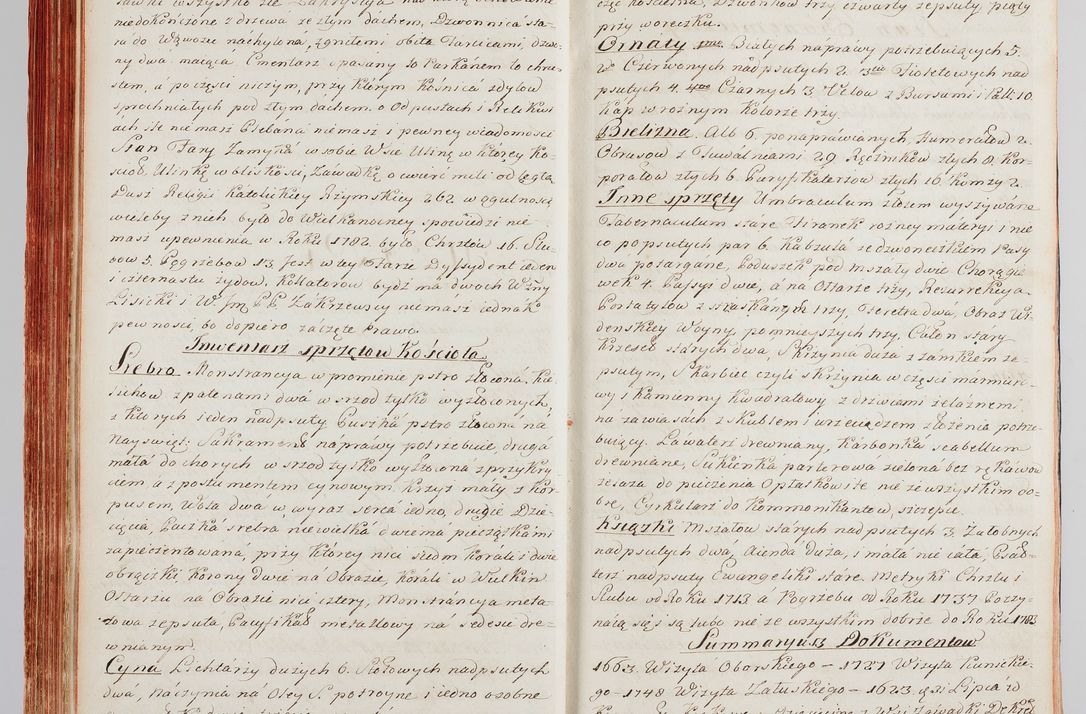 ławki wszystko złe Zakrystya
niedokończone z drzewa ze złym dachem, Dzwonnica sta-
ra do Wąwozu nachylona, zgniłemi obita Tarcicami, dzwo-
ny dwa maiąca Cmentarz opasany to Parkanem to chru-
stem, a po części niczym, przy którym Kośnica zdyłow
spróchniałych pod złym dachem. o Odpustach i Relikwi-
ach że niemasz Plebana niemasz i pewney wiadomości
Stan Fary Zamyka w sobie Wsie Ulinę w którey Ko-
ściół, Ulinkę w bliskości, Zawadkę o cwierć mili odległą
Dusz Religii Katolickiey Rzymskiey 262 w ogulności
wieleby z nich było do Wielkanocney spowiedzi nie
masz upewnienia w Roku 1782 było Chrztów 16. Slu-
bow 5. Pogrzebow 13. Jest w tey Farze Dyssydent ieden
i czternastu żydow, Kollatorow bydź ma dwoch W żny
Lisicki i W. Jm PP Zakrzewscy niemasz iednak
pewności, bo dopiero zaczęte Prawo.
Inwentarz sprzętow Kościoła.
Srebro Monstrancya w promienie pstro złocona, Kie-
lichow z patenami dwa w srzod tylko wyzłoconych,
z których ieden nadpsuty. Puszka pstro złocona na
Nayświęt: Sakrament naprawy potrzebuie, druga
mała do chorych w srzod tylko wyzłocona z przykry-
ciem, a z postumentem cynowym. Krzyż mały z Kor-
pusem, Wota dwa w wyraz serca iedno, drugie Dzie-
cięcia, Paczka srebra niewielka dwiema pieczątkami
zapieczętowana, przy którey nici siedm korali i dwie
obrączki, Korony dwie na Obrazie, Korali w Wielkim
Ołtarzu na Obrazie nici cztery, Monstrancya meta-
lowa zepsuta, Pacyfikał metallowy na sedesie dre-
wnianym.
Cyna Lichtarzy dużych 6. Stołowych nadpsutych
dwa, Naczynia na Oley S. potroyne i iedno osobne
część Kościoła, Dzwonkow trzy czwarty zepsuty piąty
przy woreczku.
Ornaty 1mo Białych naprawy potrzebuiących 5.
2do Czerwonych nadpsutych 2. 3tio Fioletowych nad
psutych 4. 4to Czarnych 3 Velow z Bursami i Pall: 10.
Kap w rożnym Kolorze trzy.
Bielizna. Alb 6. ponaprawianych, Humerałow 2.
Obrusow z Tuwalniami 29 Ręcznikow złych 8. Kor-
porałow złych 6. Puryfikaterzow złych 16. Komży 2.
Inne sprzęty Umbraculum złotem wyszywane
Tabernaculum stare Firanek rożney materyi i nie
co popsutych par 6. Kabzula ze dzwoneczkiem Pasy
dwa potargane, Poduszek pod mszały dwie Chorągie
wek 4. Passyi dwie, a na Ołtarze trzy, Resurrekcya.
Portatylow z straskanym trzy, Feretra dwa, Obraz Wi-
denskiey Woyny, pomnieyszych trzy, Całun stary
Krzeseł starych dwa, Skrzynia duża z zamkiem ze-
psutym, Skarbiec czyli skrzynia w części marmuro-
wy i Kamienny Kwadratowy z drzwiami żelaznemi
na zawiasach z skublem i wrzeciądzem złożenia potrze-
buiący. Lawaterz drewniany, Karbonka scabellum
drewniane, Sukienka parterowa zielona bez rękawow
żelaza do pieczenia Opłatkow ale nie ze wszystkim do-
bre, Cyrkularz do Kommonikantow, szczypce.
Ksiązki Mszałow starych nadpsutych 3. Załobnych
nadpsutych dwa, Aienda duża, i mała nie cała, Psał-
terz nadpsuty Ewangeliki stare. Metryki Chrztu i
Slubu od Roku 1713 a Pogrzebu od Roku 1737 Poczy-
naią się i są lubo nie ze wszystkim dobrze do Roku 1783
Summaryusz Dokumentow
1663. Wizyta Oborskiego – 1727 Wizyta Kunickie-
go – 1748 Wizyta Załuskiego – 1623 Lipca